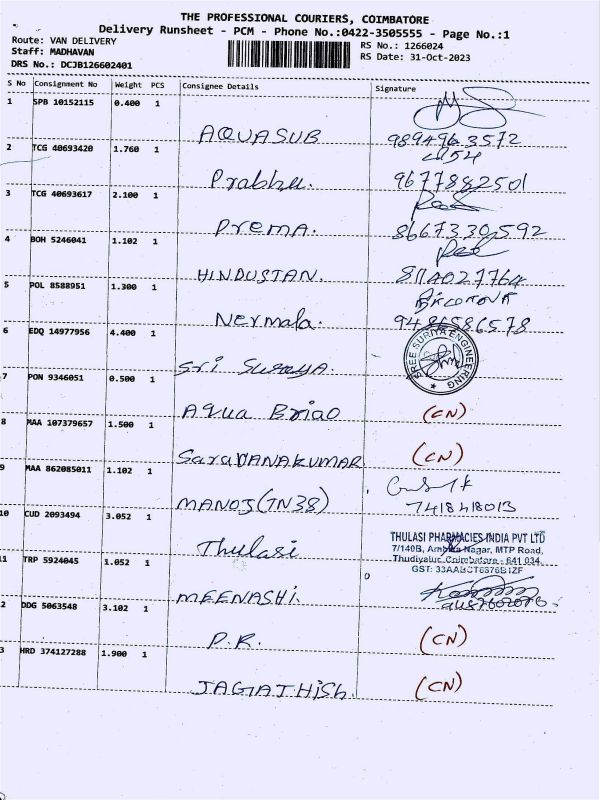 THE PROFESSIONAL COURIERS, COIMBATORE
Delivery Runsheet - PCM - Phone No.:0422-3505555 - Page No.:1
Route: VAN DELIVERY
Staff: MADHAVAN
DRS No.: DCJB126602401
RS No.: 1266024
RS Date: 31-Oct-2023
S No Consignment No Weight PCS Consignee Details Signature
1 SPB 10152115 0.400 1
AQUASUB 9894963572
2 TCG 40693420 1.760 1
Prabhu. 9677882501
3 TCG 40693617 2.100 1
Prema. 8667330592
4 BOH 5246041 1.102 1
HINDUSTAN.
5 POL 8588951 1.300 1
Nermala. 9486586578
6 EDQ 14977956 4.400 1
Sri Suraya. SREE SURYA ENGINEERING
7 PON 9346051 0.500 1
Aqua Briao (CN)
8 MAA 107379657 1.500 1
SaraVANAKUMAR (CN)
9 MAA 862085011 1.102 1
MANOJ(TN38) 7418418013
10 CUD 2093494 3.052 1
Thulasi THULASI PHARMACIES INDIA PVT LTD
7/140B, Ambika Nagar, MTP Road,
Thudiyalur, Coimbatore - 641 034.
11 TRP 5924045 1.052 1
GST: 33AABCT6676B1ZF
MEENASHI.
2 DDG 5063548 3.102 1
P.R. (CN)
3 HRD 374127288 1.900 1
JAGATHISh. (CN)